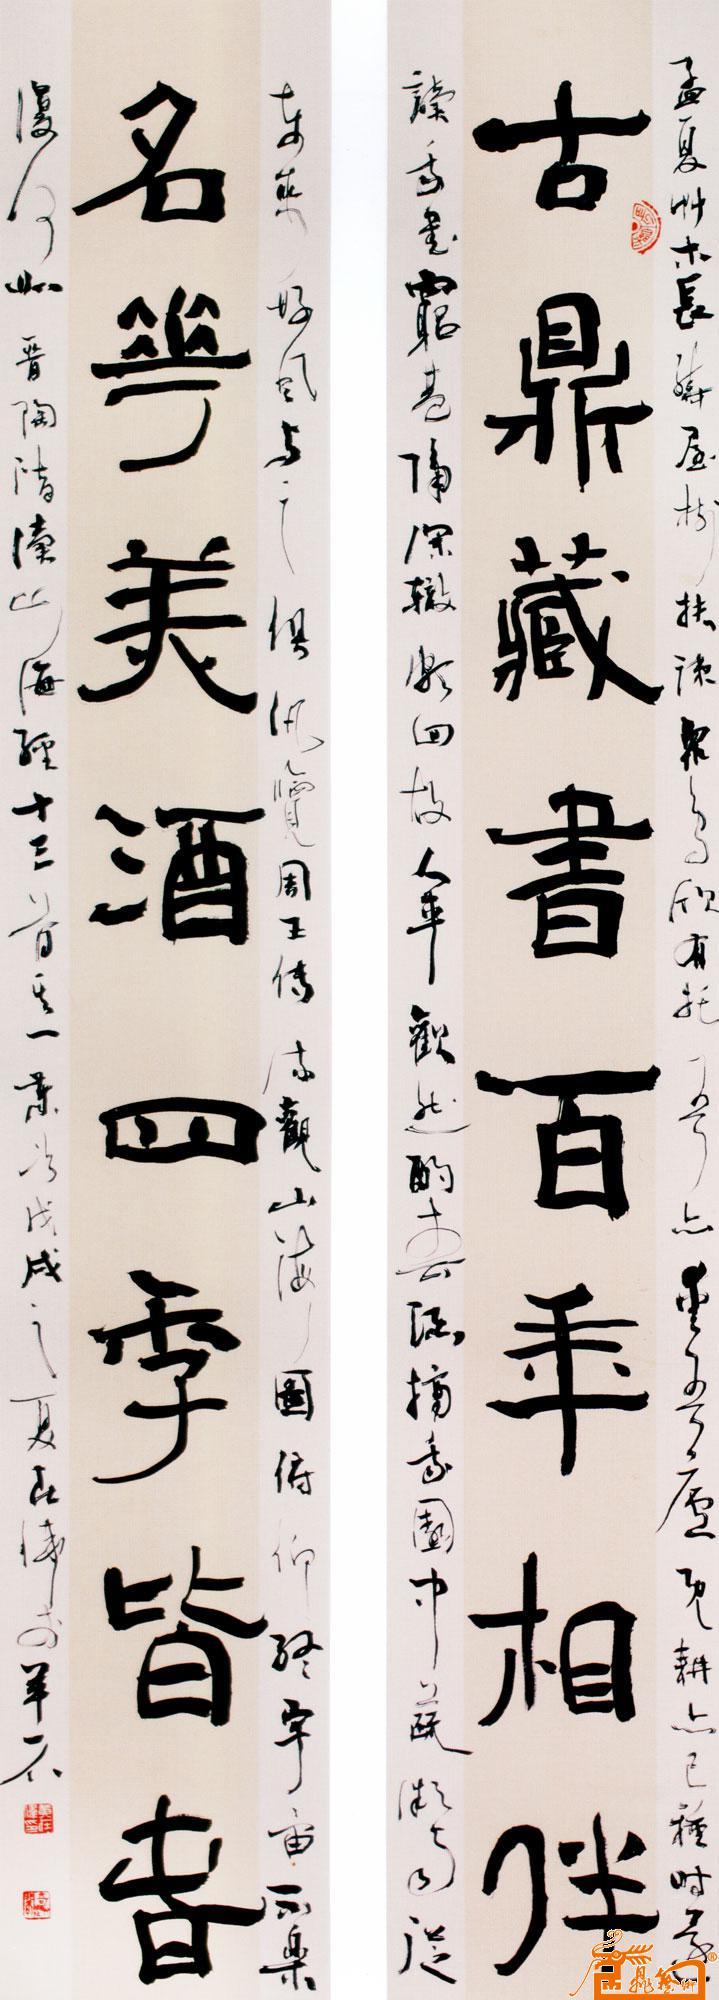 孟夏艸木長繞屋樹扶疏眾鳥欣有托吾亦愛吾廬既耕亦已種時還
古鼎藏書百年相伴
讀我書窮巷隔深轍頗回故人車歡然酌春酒摘我園中蔬微雨從
東來好風與之俱汎覽周王傳流觀山海圖俯仰終宇宙不樂
名華美酒四季皆旾
復何如晉陶潛讀山海經十三首其一歲次戊戌之夏於羊石